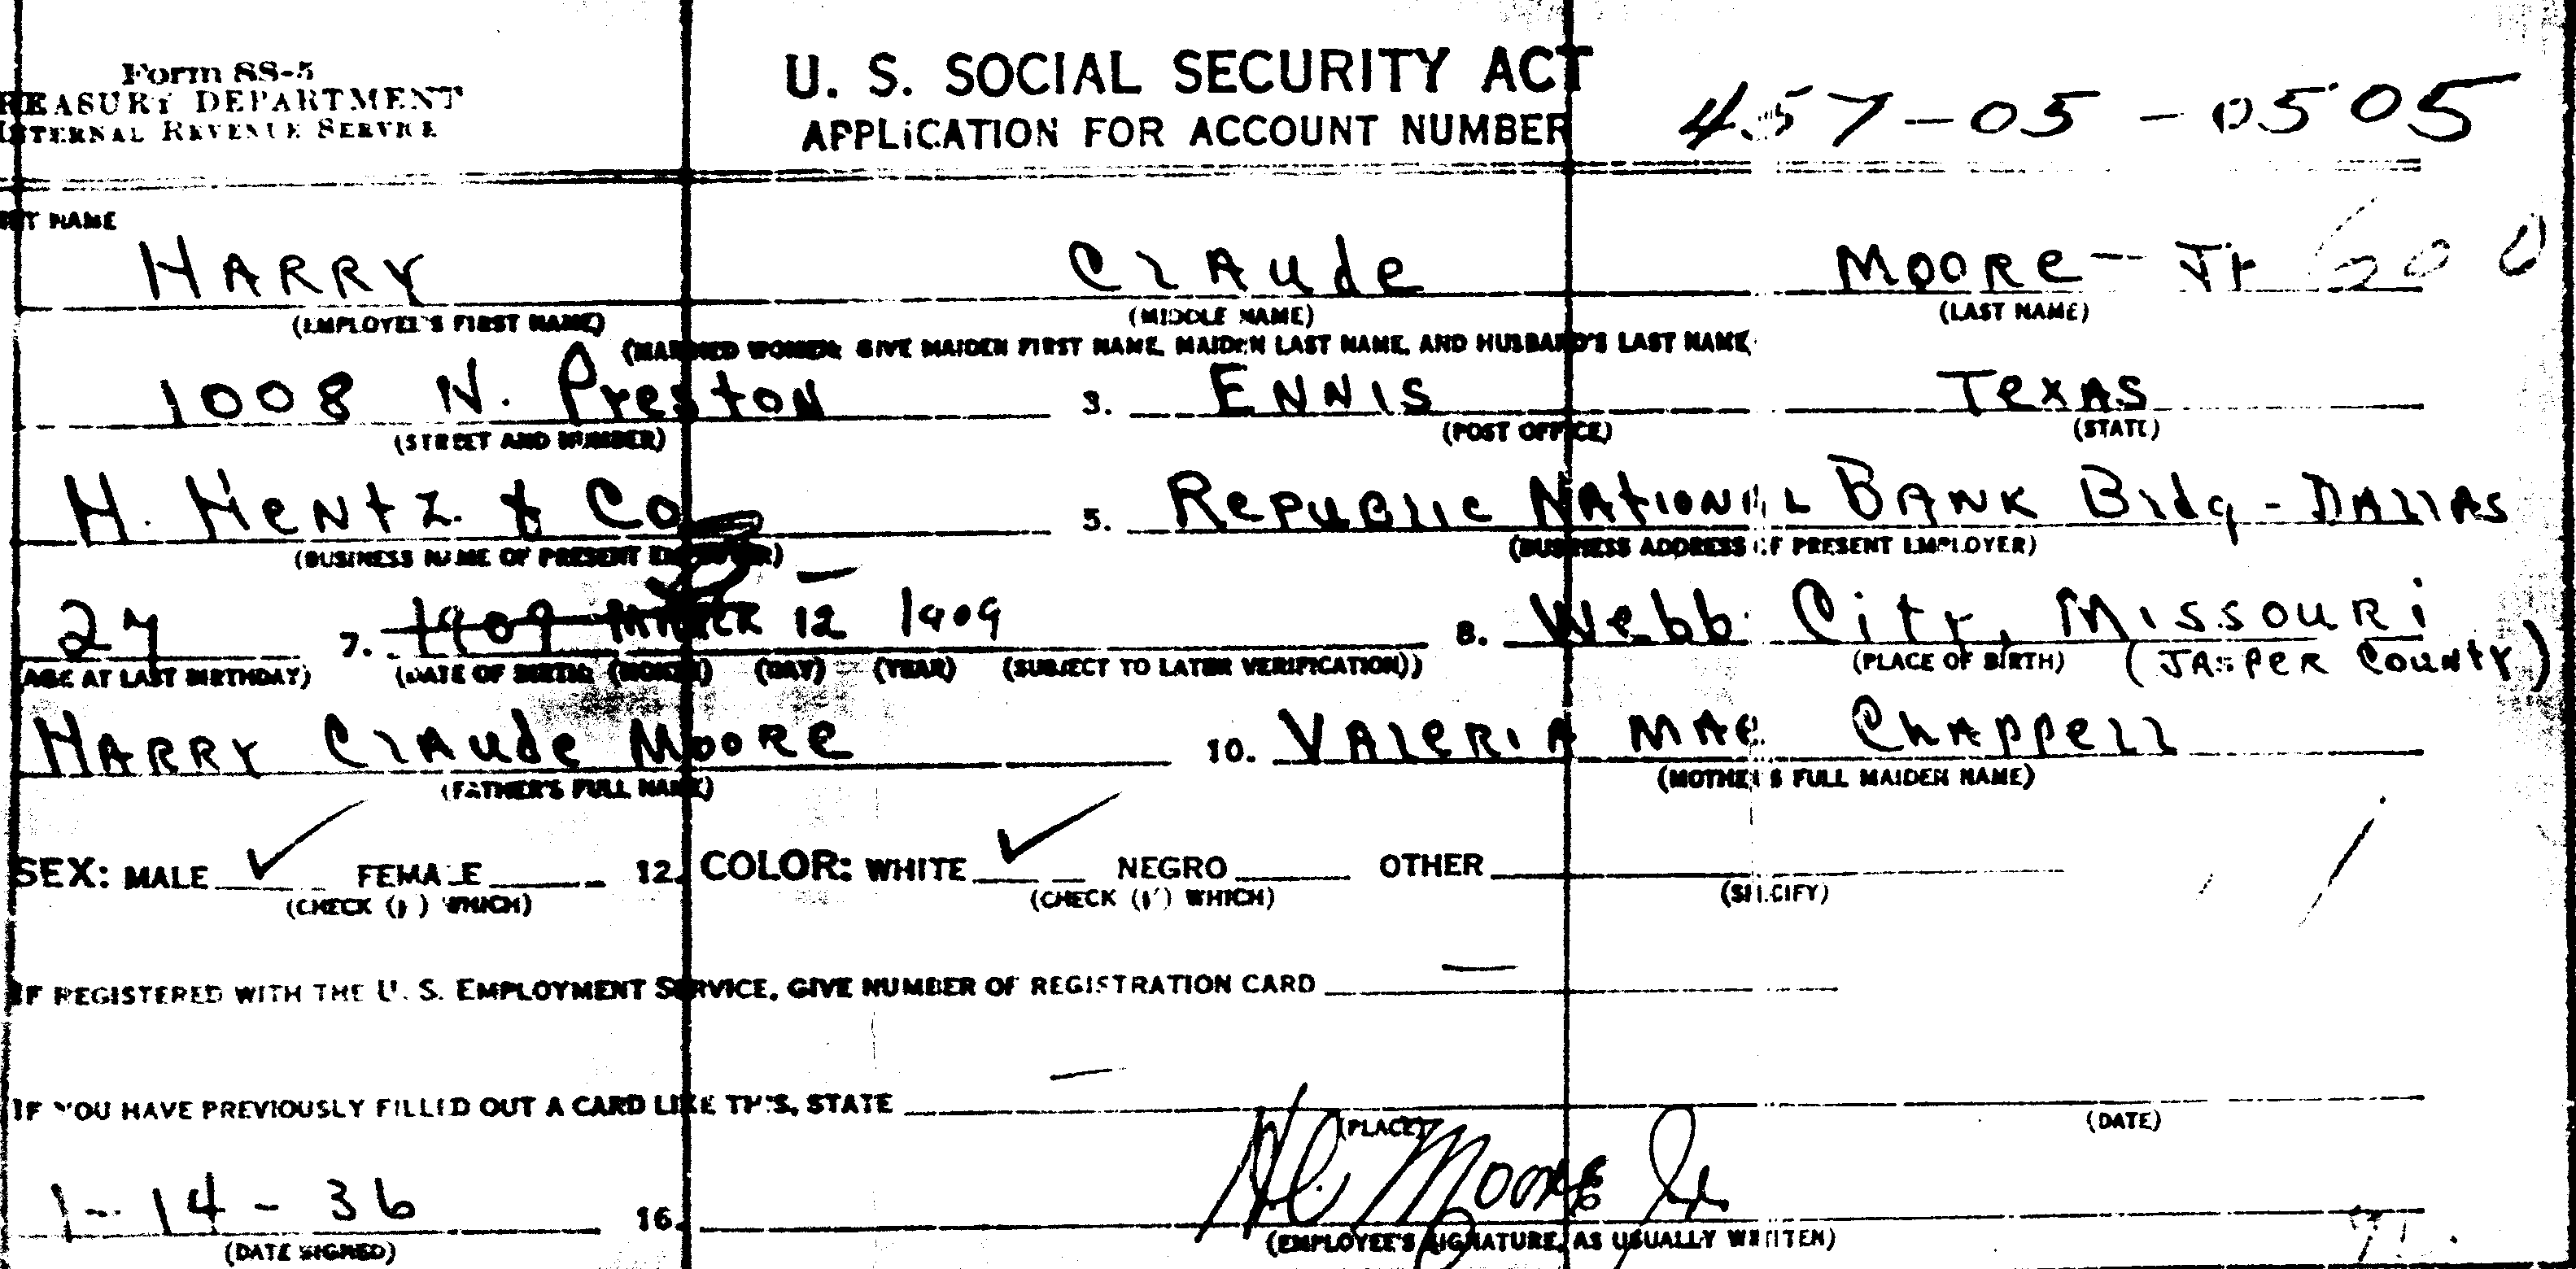 Form SS-5
REASURY DEPARTMENT
INTERNAL REVENUE SERVICE
U. S. SOCIAL SECURITY ACT
APPLICATION FOR ACCOUNT NUMBER
457-05-0505
NAME
HARRY Claude Moore - Jr
(EMPLOYEE'S FIRST NAME) (MIDDLE NAME) (LAST NAME)
(MARRIED WOMEN: GIVE MAIDEN FIRST NAME, MAIDEN LAST NAME, AND HUSBAND'S LAST NAME
1008 N. Preston 3. ENNIS TexAS
(STREET AND NUMBER) (POST OFFICE) (STATE)
H. HENtz. & Co 5. RePUBlic NAtIONAL BANK Bldg - DALLAS
(BUSINESS NAME OF PRESENT EMPLOYER) (BUSINESS ADDRESS OF PRESENT EMPLOYER)
27 7. 1909 MARCH 12 1909 8. Webb City, MISSOURi
(AGE AT LAST BIRTHDAY) (DATE OF BIRTH: (MONTH) (DAY) (YEAR) (SUBJECT TO LATER VERIFICATION)) (PLACE OF BIRTH) (JASPER COUNTY)
HARRY Claude Moore 10. VALERIA MAE Chappell
(FATHER'S FULL NAME) (MOTHER'S FULL MAIDEN NAME)
SEX: MALE ✓ FEMALE 12. COLOR: WHITE ✓ NEGRO OTHER
(CHECK (✓) WHICH) (CHECK (✓) WHICH) (SPECIFY)
IF REGISTERED WITH THE U. S. EMPLOYMENT SERVICE, GIVE NUMBER OF REGISTRATION CARD —
IF YOU HAVE PREVIOUSLY FILLED OUT A CARD LIKE THIS, STATE —
(PLACE) (DATE)
1-14-36 16. H C Moore Jr
(DATE SIGNED) (EMPLOYEE'S SIGNATURE, AS USUALLY WRITTEN)